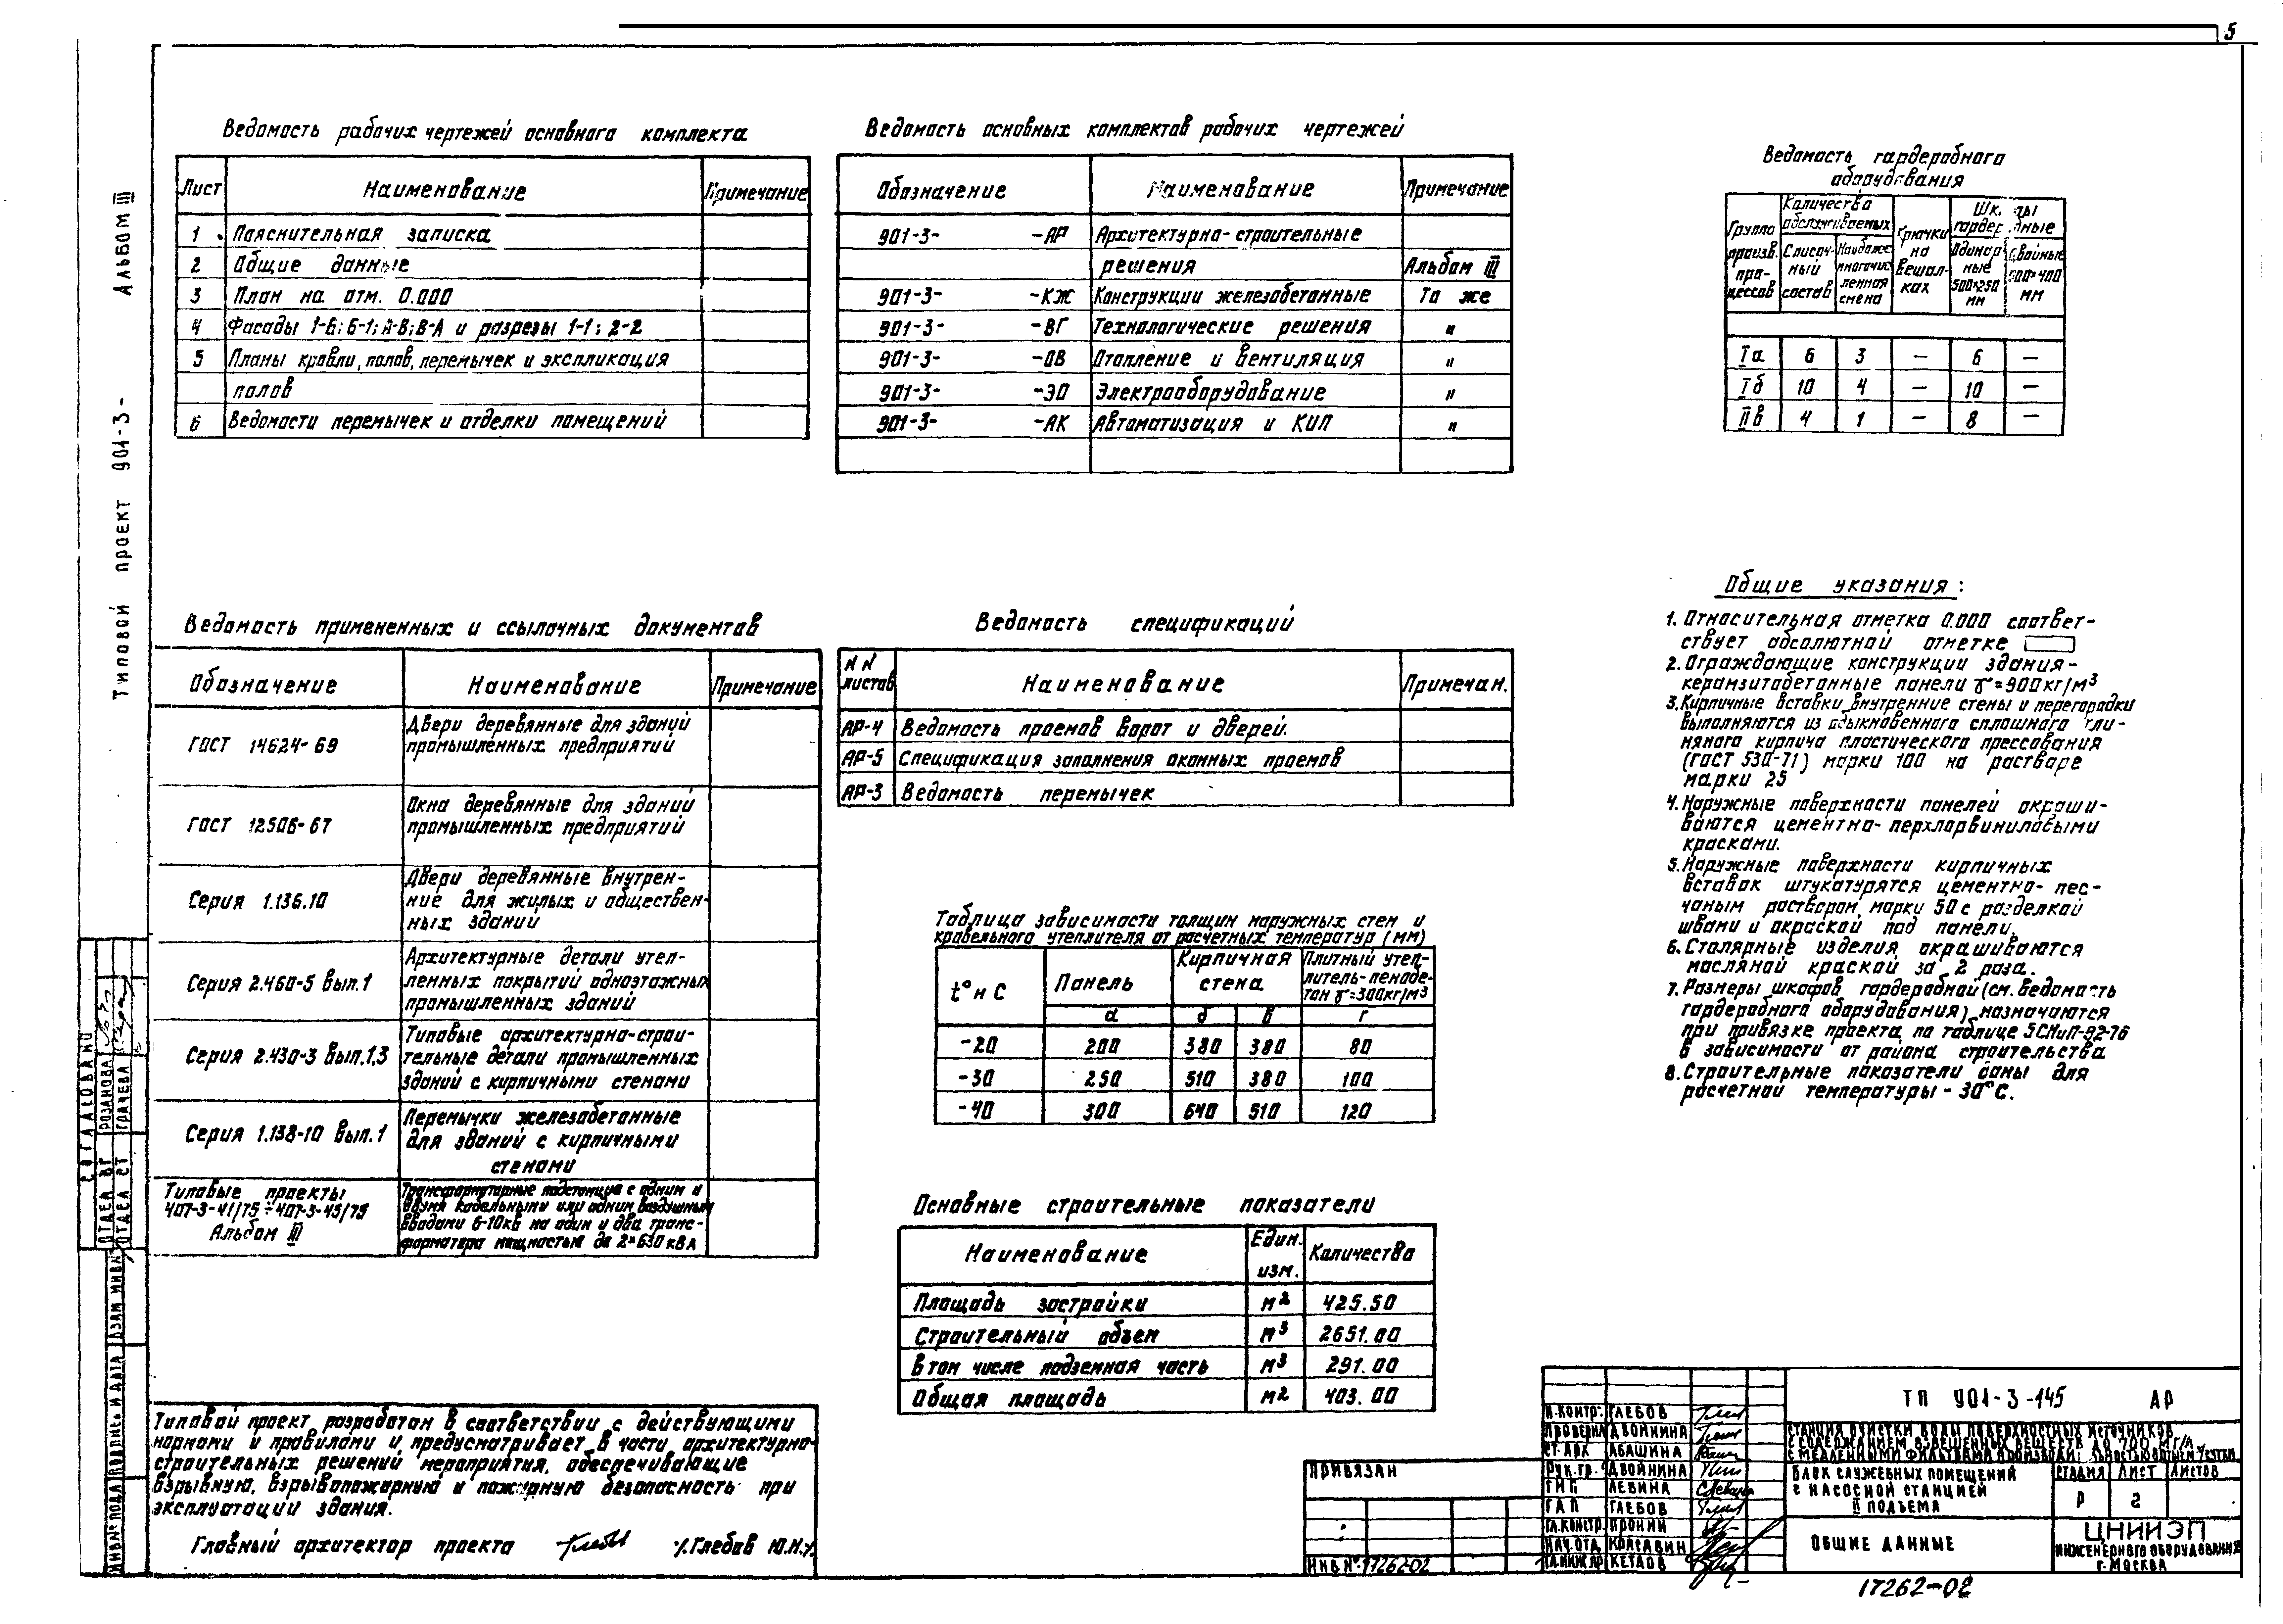 5
Альбом III
Типовой проект 901-3-
Ведомость рабочих чертежей основного комплекта
Лист Наименование Примечание
1 Пояснительная записка
2 Общие данные
3 План на отм. 0.000
4 Фасады 1-6; 6-1; А-В; В-А и разрезы 1-1; 2-2
5 Планы кровли, полов, перемычек и экспликация
полов
6 Ведомости перемычек и отделки помещений
Ведомость основных комплектов рабочих чертежей
Обозначение Наименование Примечание
901-3- -АР Архитектурно-строительные
решения Альбом III
901-3- -КЖ Конструкции железобетонные То же
901-3- -ВГ Технологические решения "
901-3- -ОВ Отопление и вентиляция "
901-3- -ЭО Электрооборудование "
901-3- -АК Автоматизация и КИП "
Ведомость гардеробного
оборудования
Группа произв. процессов
Количество обслуживаемых
Списочный состав
Наиболее многочисленная смена
Крючки на вешалках
Одинарные 500×250 мм
мм
Iа 6 3 — 6 —
Iб 10 4 — 10 —
IIв 4 1 — 8 —
Ведомость примененных и ссылочных документов
Обозначение Наименование Примечание
ГОСТ 14624-69 Двери деревянные для зданий
промышленных предприятий
ГОСТ 12506-67 Окна деревянные для зданий
промышленных предприятий
Серия 1.136.10 Двери деревянные внутрен-
ние для жилых и обществен-
ных зданий
Серия 2.460-5 вып.1 Архитектурные детали утеп-
ленных покрытий одноэтажных
промышленных зданий
Серия 2.430-3 вып.1,3 Типовые архитектурно-строи-
тельные детали промышленных
зданий с кирпичными стенами
Серия 1.138-10 вып.1 Перемычки железобетонные
для зданий с кирпичными
стенами
Типовые проекты
407-3-41/75 ÷ 407-3-45/75
Альбом III
Трансформаторные подстанции с одним и
двумя кабельными или одним воздушным
вводами 6-10кВ на один и два транс-
форматора мощностью до 2×630 кВА
Ведомость спецификаций
NN листов Наименование Примечан.
АР-4 Ведомость проемов ворот и дверей.
АР-5 Спецификация заполнения оконных проемов
АР-3 Ведомость перемычек
Таблица зависимости толщин наружных стен и
кровельного утеплителя от расчетных температур (мм)
t°н С Панель Кирпичная стена Плитный утеп-
литель-пенобе-
тон γ=300кг/м3
а б в г
-20 200 380 380 80
-30 250 510 380 100
-40 300 640 510 120
Основные строительные показатели
Наименование Един. изм. Количество
Площадь застройки м2 425.50
Строительный объем м3 2651.00
В том числе подземная часть м3 291.00
Общая площадь м2 403.00
Общие указания:
1. Относительная отметка 0.000 соответ-
ствует абсолютной отметке
2. Ограждающие конструкции здания-
керамзитобетонные панели γ=900кг/м3
3. Кирпичные вставки, внутренние стены и перегородки
выполняются из обыкновенного сплошного гли-
няного кирпича пластического прессования
(ГОСТ 530-71) марки 100 на растворе
марки 25
4. Наружные поверхности панелей окраши-
ваются цементно-перхлорвиниловыми
красками.
5. Наружные поверхности кирпичных
вставок штукатурятся цементно-пес-
чаным раствором, марки 50 с разделкой
швами и окраской под панели.
6. Столярные изделия окрашиваются
масляной краской за 2 раза.
7. Размеры шкафов гардеробной (см. ведомость
гардеробного оборудования) назначаются
при привязке проекта по таблице 5 СНиП-92-76
в зависимости от района строительства
8. Строительные показатели даны для
расчетной температуры -30°С.
Типовой проект разработан в соответствии с действующими
нормами и правилами и предусматривает в части архитектурно-
строительных решений мероприятия, обеспечивающие
взрывную, взрывопожарную и пожарную безопасность при
эксплуатации здания.
Главный архитектор проекта /Глебов Ю.Н./
Согласовано
Отдел ВГ Розанова
Отдел СТ Грачева
Взам инв N
Подпись и дата
Инв N подл
Привязан
Инв N: 17262-02
Н.контр. Глебов
Проверил Двойнина
Ст. арх Абашина
Рук. гр. Двойнина
ГИП Левина
ГАП Глебов
Гл. констр. Пронин
Нач. отд Красавин
Гл. инж. пр Кетаов
ТП 901-3-145 АР
Станция очистки воды поверхностных источников
с содержанием взвешенных веществ до 700 мг/л
с медленными фильтрами
Блок служебных помещений
с насосной станцией
II подъема
Стадия Лист Листов
Р 2
Общие данные
ЦНИИЭП
инженерного оборудования
г. Москва
17262-02